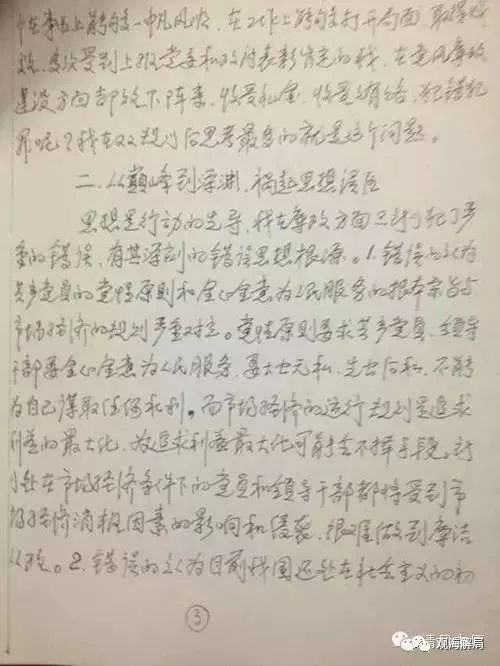 性事业上能够一帆风顺，在工作上能够打开局面，取得成
效，多次受到上报党委和政府表彰肯定的我，在党风廉政
建设方面却败下阵来，收受礼金，收受贿赂，犯错犯
罪呢？我在双规以后思考最多的就是这个问题。
二、从巅峰到深渊，祸起思想误区
思想是行动的先导，我在廉政方面之所以犯了严
重的错误，有其深刻的错误思想根源。1.错误的认为
共产党员的党性原则和全心全意为人民服务的根本宗旨与
市场经济的规则严重对立。党性原则要求共产党员、领导
干部要全心全意为人民服务，要大公无私，先公后私，不能
为自己谋取任何私利。而市场经济的运行规则是追求
利益的最大化，为追求利益最大化可能会不择手段。
处在市场经济条件下的党员和领导干部都将受到市
场经济消极因素的影响和侵袭，很难做到廉洁
从政。2.错误的认为目前我国还处在社会主义的初
③
观海解局